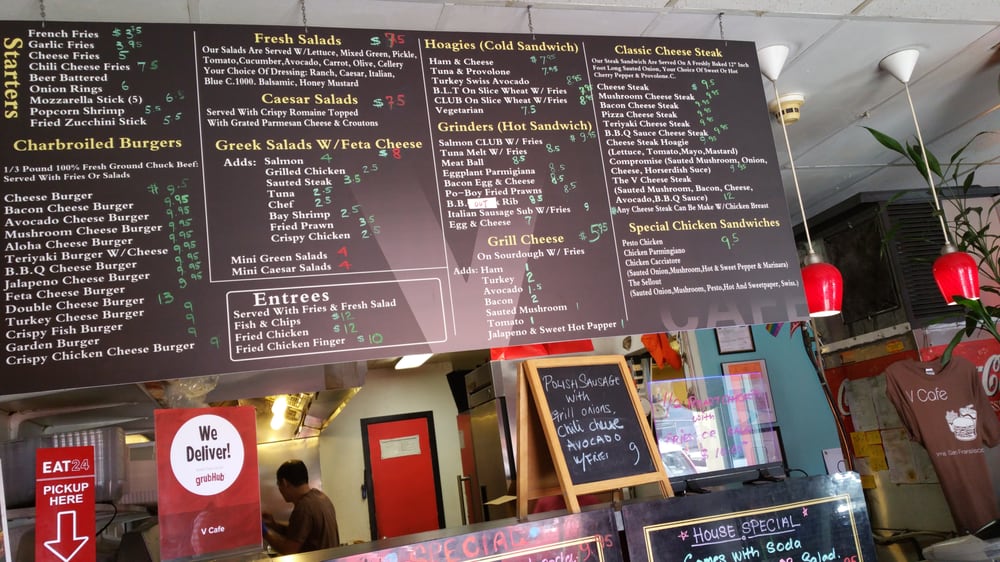 Starters
French Fries $ 3.25
Garlic Fries 3.95
Cheese Fries 5
Chili Cheese Fries 7.5
Beer Battered
Onion Rings 6
Mozzarella Stick (5) 6.5
Popcorn Shrimp 5.5
Fried Zucchini Stick 5.5
Charbroiled Burgers
1/3 Pound 100% Fresh Ground Chuck Beef:
Served With Fries Or Salads
Cheese Burger $ 9.5
Bacon Cheese Burger 9.95
Avocado Cheese Burger 9.95
Mushroom Cheese Burger 9.95
Aloha Cheese Burger 9.95
Teriyaki Burger W/Cheese 9.95
B.B.Q Cheese Burger 9.95
Jalapeno Cheese Burger 9.95
Feta Cheese Burger 9.95
Double Cheese Burger 13
Turkey Cheese Burger 9
Crispy Fish Burger 9
Garden Burger 9
Crispy Chicken Cheese Burger 9
Fresh Salads $ 7.5
Our Salads Are Served W/Lettuce, Mixed Green, Pickle,
Tomato,Cucumber,Avocado, Carrot, Olive, Cellery
Your Choice Of Dressing: Ranch, Caesar, Italian,
Blue C.1000. Balsamic, Honey Mustard
Caesar Salads $ 7.5
Served With Crispy Romaine Topped
With Grated Parmesan Cheese & Croutons
Greek Salads W/Feta Cheese $ 8
Adds: Salmon 4
Grilled Chicken 2.5
Sauted Steak 3.5
Tuna 2.5
Chef 2.5
Bay Shrimp 2.5
Fried Prawn 3.5
Crispy Chicken 2.5
Mini Green Salads 4
Mini Caesar Salads 4
Entrees
Served With Fries & Fresh Salad
Fish & Chips $ 12
Fried Chicken $ 12
Fried Chicken Finger $ 10
Hoagies (Cold Sandwich)
Ham & Cheese $ 7.95
Tuna & Provolone 7.95
Turkey Swiss Avocado 8.95
B.L.T On Slice Wheat W/Fries
CLUB On Slice Wheat W/Fries
Vegetarian 7.5
Grinders (Hot Sandwich)
Salmon CLUB W/ Fries $ 9.95
Tuna Melt W/ Fries 8.5
Meat Ball 8.5
Eggplant Parmigiana 8.5
Bacon Egg & Cheese 8.5
Po-Boy Fried Prawns 8.5
B.B. OUT k Rib 8.5
Italian Sausage Sub W/Fries 9
Egg & Cheese 7
Grill Cheese $ 5.95
On Sourdough W/ Fries
Adds: Ham 1
Turkey 2
Avocado 1.5
Bacon 2
Sauted Mushroom 1
Tomato 1
Jalapeno & Sweet Hot Papper 1
Classic Cheese Steak
Our Steak Sandwich Are Served On A Freshly Baked 12" Inch
Foot Long Sauted Onion, Your Choice Of Sweet Or Hot
Cherry Pepper & Provolone.C.
Cheese Steak $ 9.5
Mushroom Cheese Steak 9.95
Bacon Cheese Steak 9.95
Pizza Cheese Steak 9.95
Teriyaki Cheese Steak 9.95
B.B.Q Sauce Cheese Steak 9.95
Cheese Steak Hoagie 9.95
(Lettuce, Tomato,Mayo,Mastard)
Compromise (Sauted Mushroom, Onion,
Cheese, Horserdish Suce) 9.95
The V Cheese Steak
(Sauted Mushroom, Bacon, Cheese,
Avocado,B.B.Q Sauce) 12
Any Cheese Steak Can Be Make W/Chicken Breast
Special Chicken Sandwiches
Pesto Chicken 9.5
Chicken Parmingiano
Chicken Cacciatore
(Sauted Onion,Mushroom,Hot & Sweet Pepper & Marinara)
The Sellout
(Sauted Onion,Mushroom, Pesto,Hot And Sweetpaper, Swiss.)
V
CAFE
EAT24
PICKUP
HERE
We
Deliver!
grubHub
V Cafe
POLISH SAUSAGE
with
Grill onions,
chili cheese
AVOCADO
w/FRIES 9
with
FRIES OR
SPECIAL
9.95
HOUSE SPECIAL
Comes with Soda
Salad.
V Cafe
San Francisco